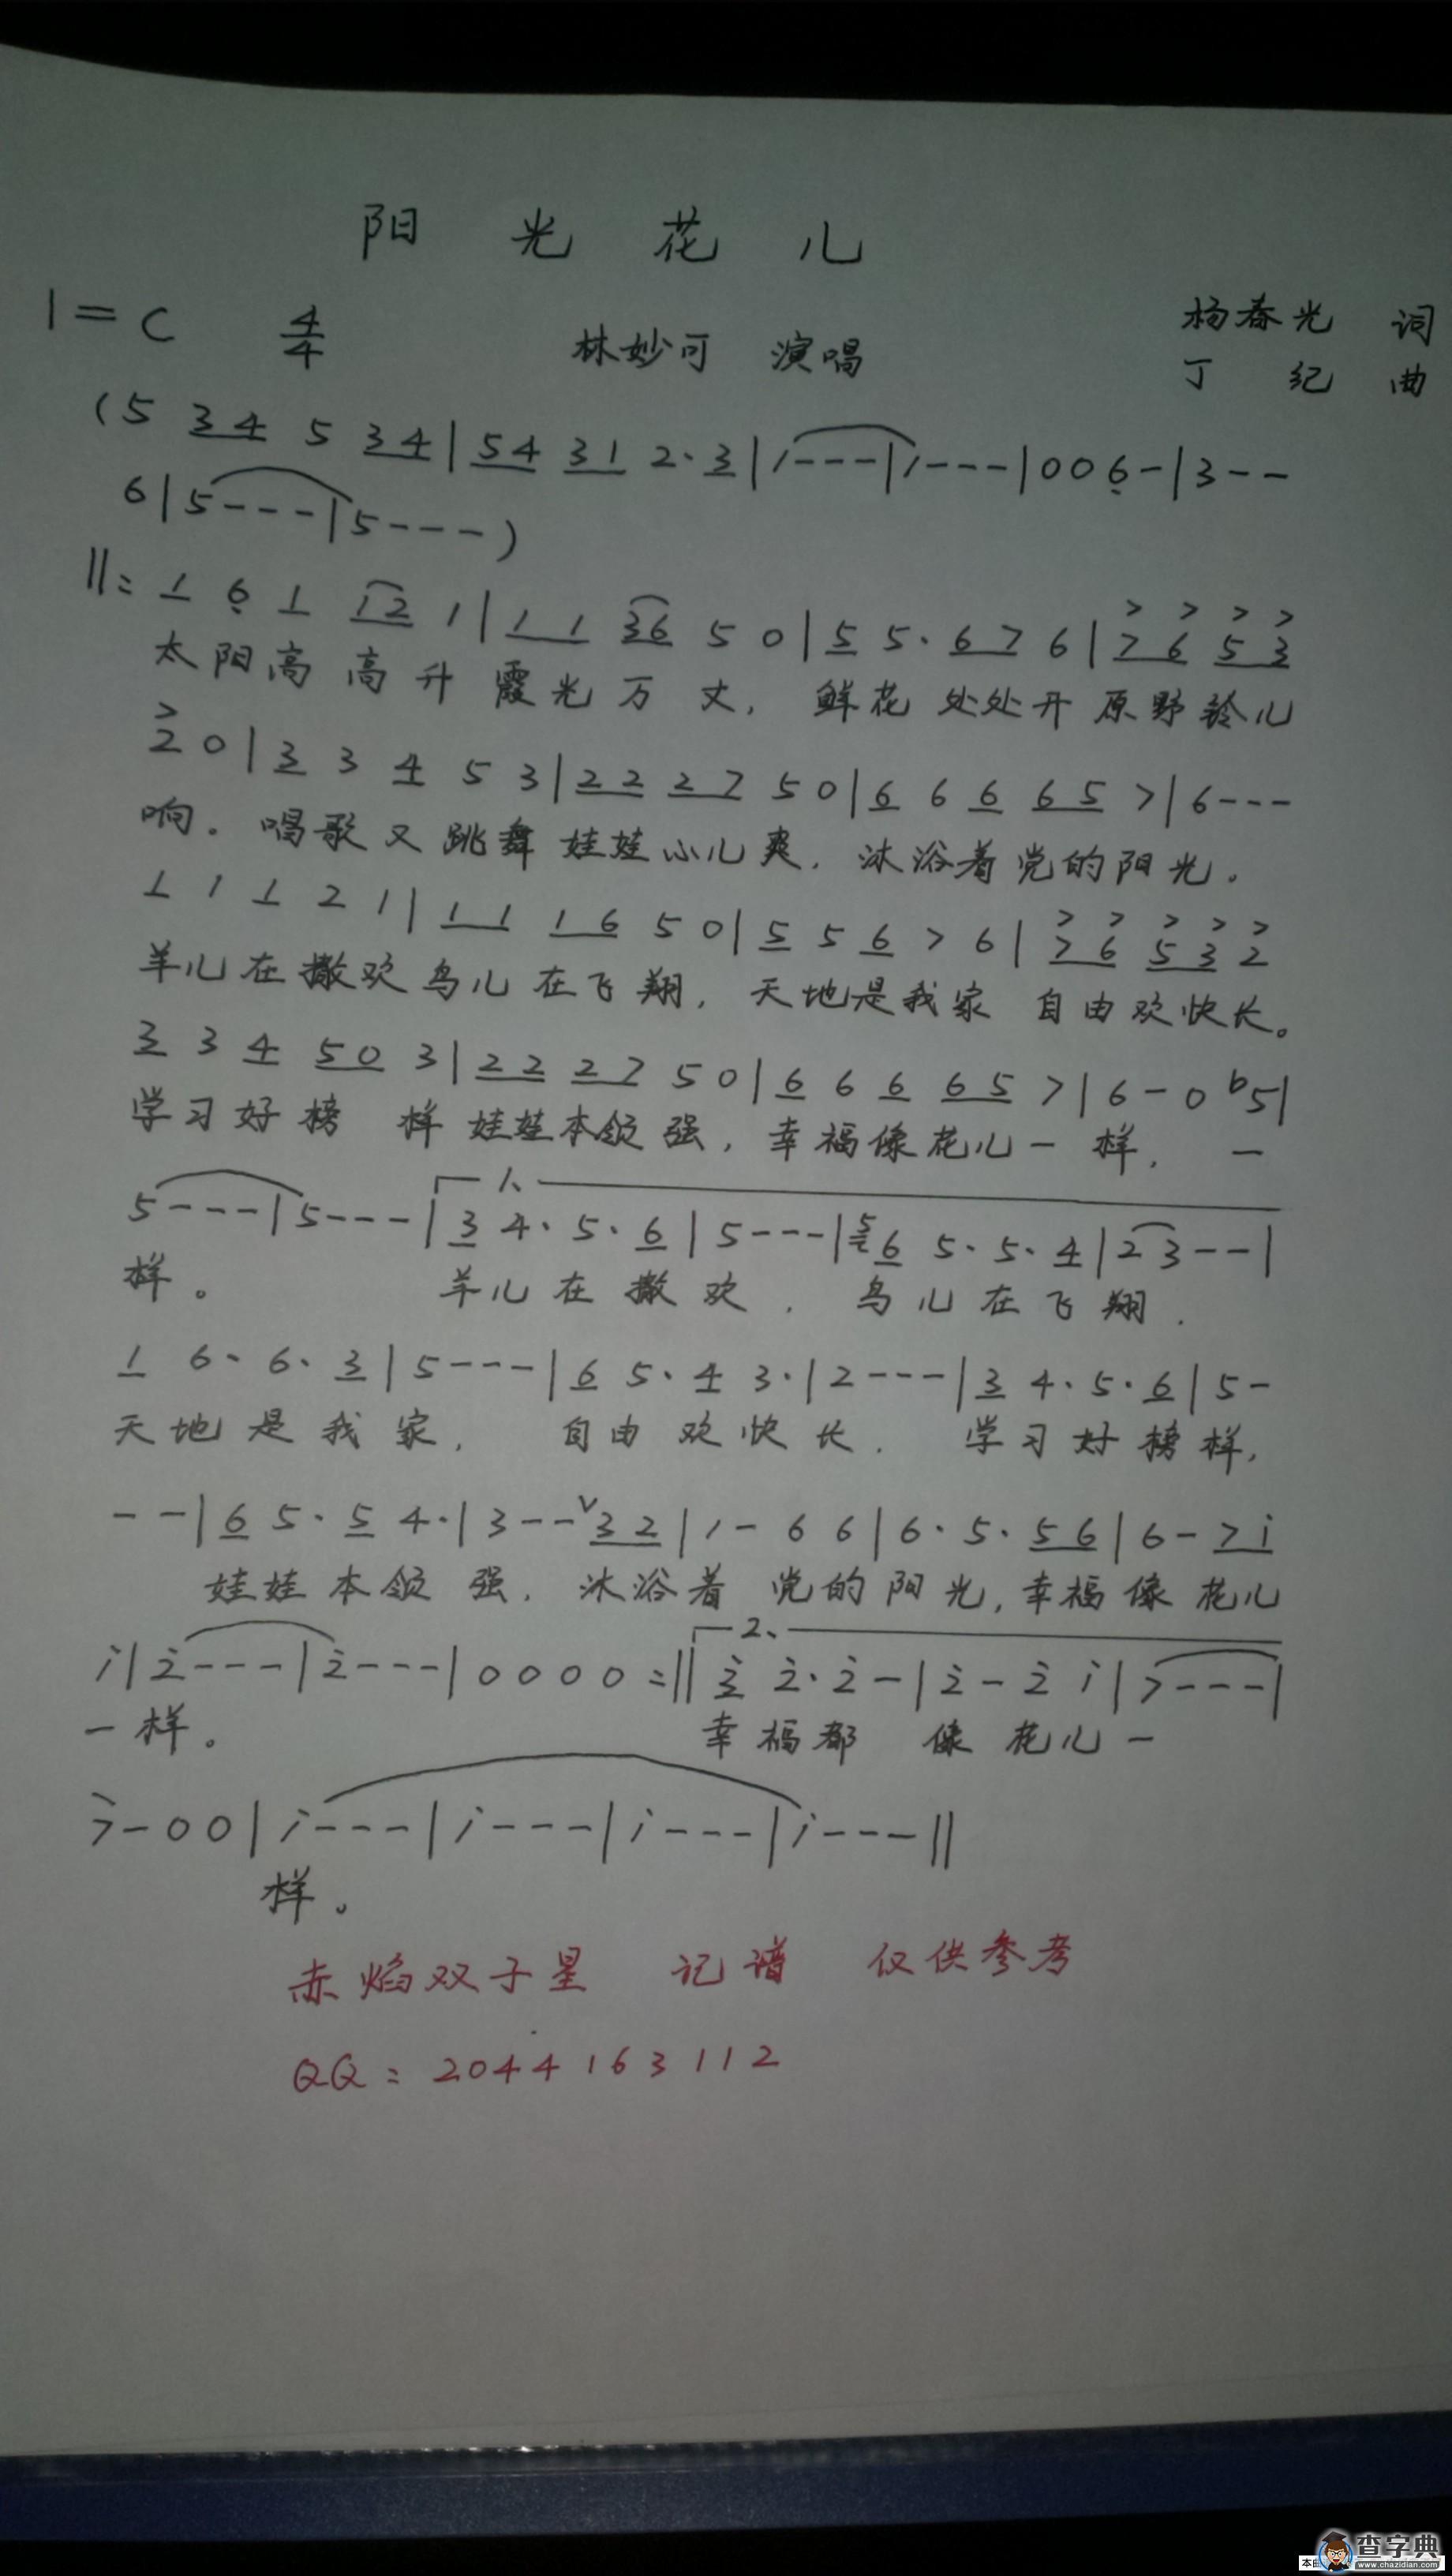 阳光花儿
1=C 4/4 林妙可 演唱 杨春光 词
丁纪 曲
(5 34 5 34|54 31 2·3|1---|1---|006-|3--
6|5---|5---)
||: 1 6 1 12 1|11 36 5 0|5 5·67 6|76 53
太阳高高升霞光万丈,鲜花处处开原野铃儿
2 0|3 3 4 5 3|22 27 5 0|6 6 6 65 7|6---
响。唱歌又跳舞娃娃心儿爽,沐浴着党的阳光。
1 1 1 2 1|11 16 5 0|5 5 6 7 6|76 53 2
羊儿在撒欢鸟儿在飞翔,天地是我家 自由欢快长。
3 3 4 50 3|22 27 5 0|6 6 6 65 7|6-0 b5|
学习好榜样娃娃本领强,幸福像花儿一样,一
5---|5---|1、3 4·5·6|5---|5 6 5·5·4|23--|
样。 羊儿在撒欢,鸟儿在飞翔,
1 6·6·3|5---|6 5·4 3·|2---|3 4·5·6|5-
天地是我家,自由欢快长,学习好榜样,
--|6 5·5 4·|3--V32|1-66|6·5·56|6-7i
娃娃本领强,沐浴着党的阳光,幸福像花儿
i|2---|2---|0000:||2、3 2·2-|2-2 i|7---|
一样。 幸福都像花儿一
7-00|i---|i---|i---|i---||
样。
赤焰双子星 记谱 仅供参考
QQ:2044163112
查字典
www.chazidian.com